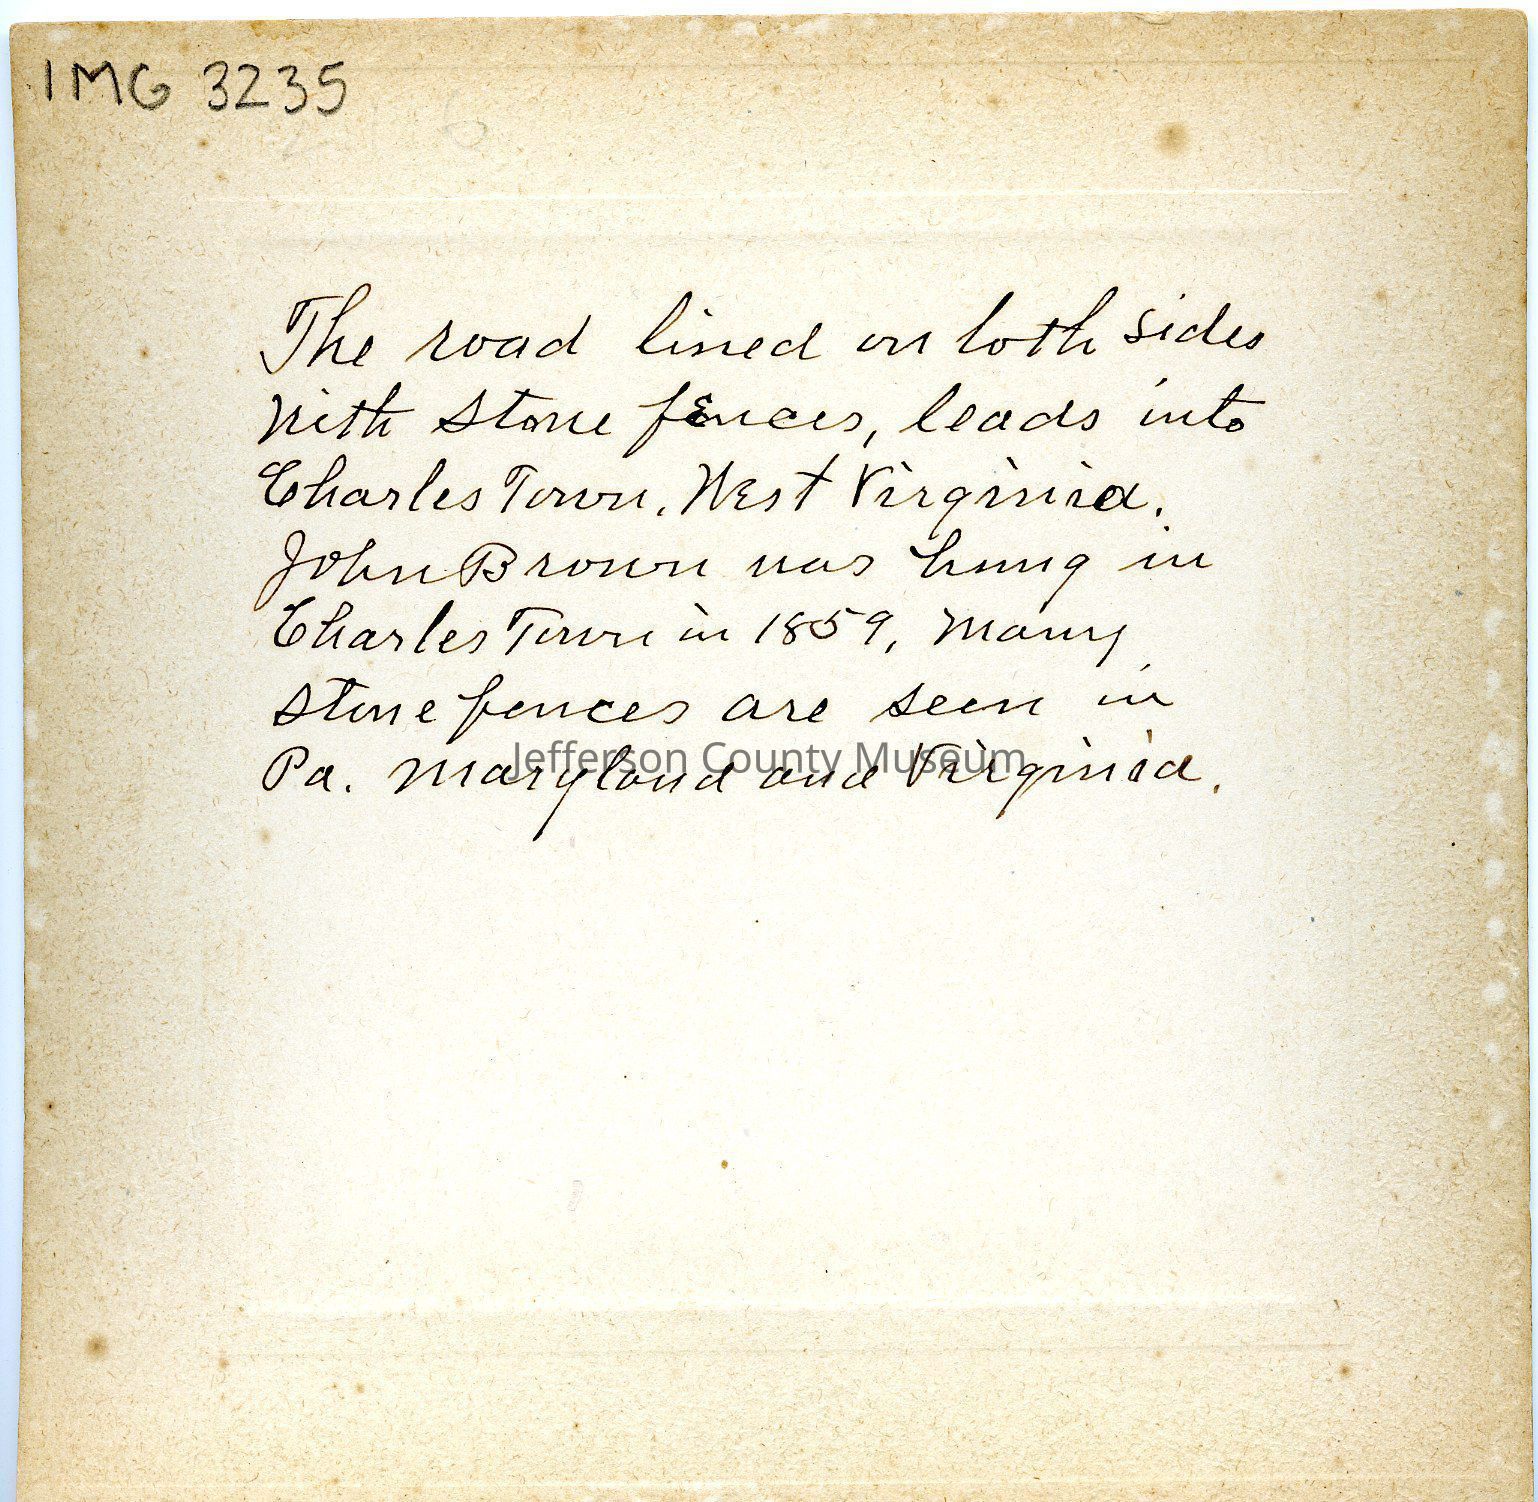 IMG 3235
The road lined on both sides
with stone fences, leads into
Charles Town, West Virginia.
John Brown was hung in
Charles Town in 1859, Many
stone fences are seen in
Pa. Maryland and Virginia.
Jefferson County Museum